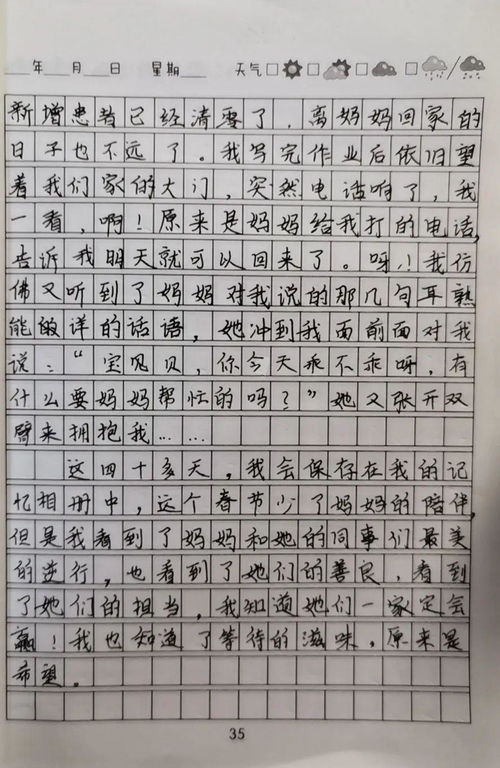 年 月 日 星期 天气
新增患者已经清零了，离妈妈回家的
日子也不远了。我写完作业后依旧望
着我们家的大门，突然电话响了，我
一看，啊！原来是妈妈给我打的电话，
告诉我明天就可以回来了。呀！我仿
佛又听到了妈妈对我说的那几句耳熟
能的详的话语，她冲到我面前面对我
说：“宝贝贝，你今天乖不乖呀，有
什么要妈妈帮忙的吗？”她又张开双
臂来拥抱我……
这四十多天，我会保存在我的记
忆相册中，这个春节少了妈妈的陪伴，
但是我看到了妈妈和她的同事们最美
的逆行，也看到了她们的善良，看到
了她们的担当，我知道她们一家定会
赢！我也知道了等待的滋味，原来是
希望。
35